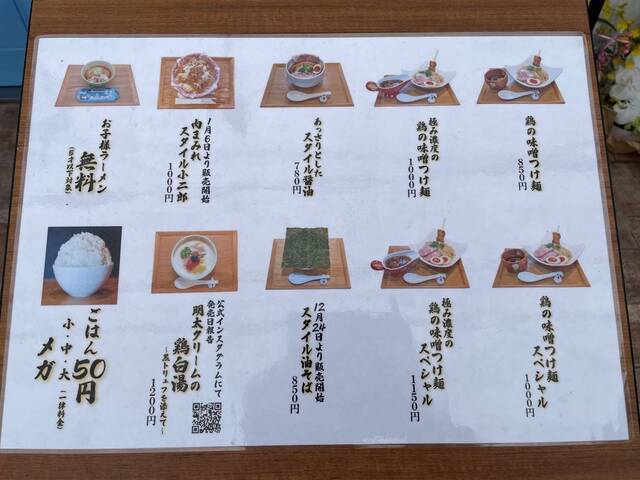 鶏の味噌つけ麺
850円
極み濃度の
鶏の味噌つけ麺
1000円
あっさりとした
スタイル醤油
780円
1月6日より販売開始
肉まみれ
スタイル小二郎
1000円
お子様ラーメン
無料
(6才以下対象)
鶏の味噌つけ麺
スペシャル
1000円
極み濃度の
鶏の味噌つけ麺
スペシャル
1150円
12月24日より販売開始
スタイル油そば
850円
公式インスタグラムにて
発売日報告
明太クリームの
鶏白湯
～黒トリュフを添えて～
1200円
ごはん50円
小・中・大 (一律料金)
メガ